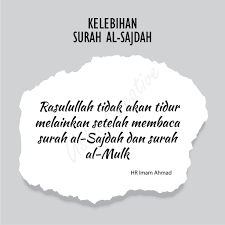 KELEBIHAN
SURAH AL-SAJDAH
Rasulullah tidak akan tidur
melainkan setelah membaca
surah al-Sajdah dan surah
al-Mulk
HR Imam Ahmad